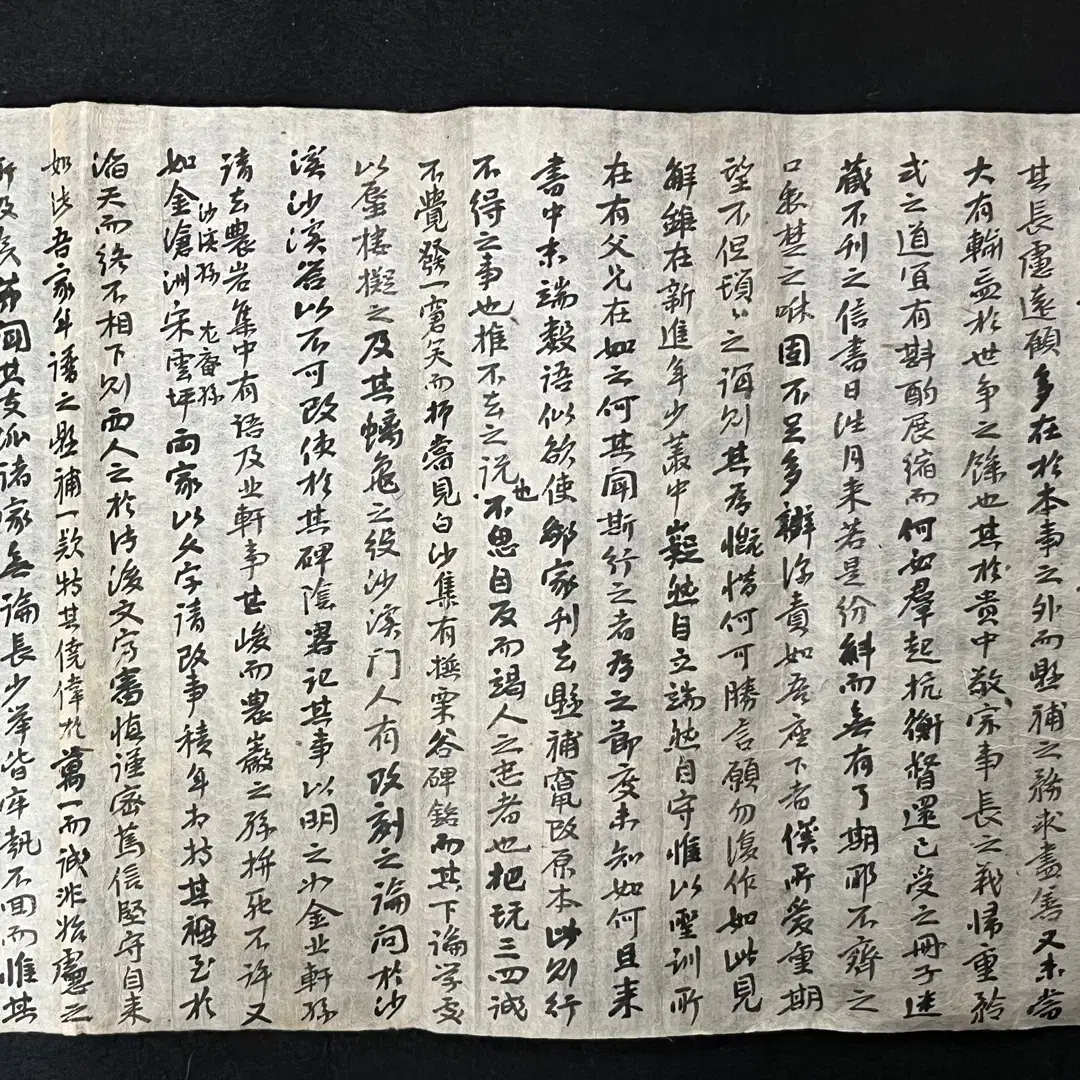 其長慮遠顧多在於本事之外而懸補之務求盡善又未嘗
大有輪益於世爭之餘也其於貴中敬宗事長之義歸重矜
式之道宜有斟酌展縮而何如羣起抗衡督還已受之冊子迷
藏不刊之信書日徃月來若是紛紏而無有了期耶不齊之
口衆楚之咻固不足多辨深責如吾座下者僕所愛重期
望不但頊〻之誨則其為慨惜何可勝言願勿復作如此見
解雖在新進年少叢中嶷然自立端然自守惟以聖訓所
在有父兄在如之何其聞斯行之者為之節度未知如何且來
書中末端數語似欲使鄙家刊去懸補竄改原本此則行
不得之事也推不去之說也不思自反而謁人之忠者也把玩三四誠
不覺發一寃笑而抑嘗見白沙集有撰栗谷碑銘而其下論学處
以蜃樓擬之及其螭龜之役沙溪門人有改刻之論問於沙
溪沙溪答以不可改使於其碑陰畧記其事以明之少金业軒孫
請去農岩集中有语及业軒事甚峻而農巖之孫拚死不許又
如金滄洲沙溪孫宋雲坪尤菴孫兩家以文字請改事積年相持其禍至於
滔天而終不相下則兩人之於传後文字審慎謹密篤信堅守自來
如此吾家年譜之懸補一欵特其僥偉於萬一而誠非始慮之
所及矣第聞其支派諸家無論長少擧皆牢執不回而惟其